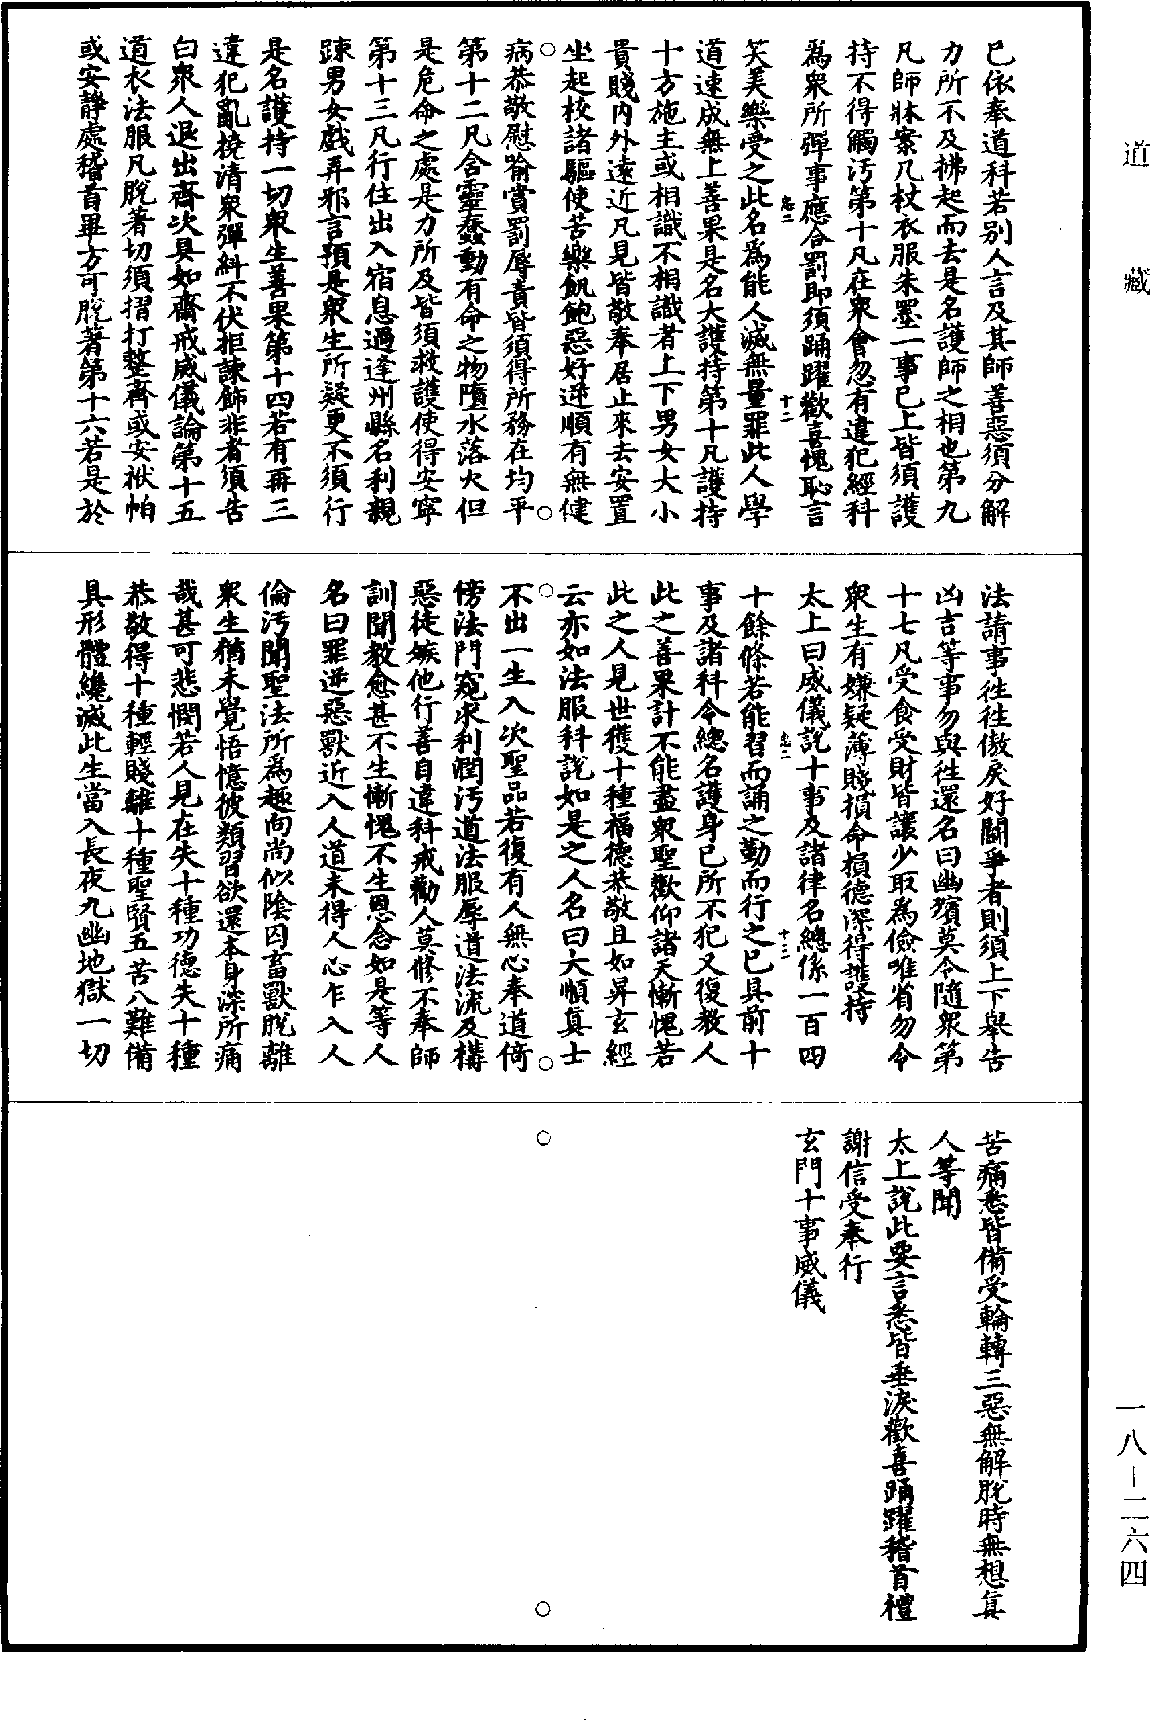 道藏
已依奉道科若別人言及其師善惡須分解
力所不及拂起而去是名護師之相也第九
凡師牀案几杖衣服朱墨一事已上皆須護
持不得觸汚第十凡在衆會忽有違犯經科
爲衆所彈事應合罰即須踊躍歡喜愧恥言
十二
笑美樂受之此名爲能人滅無量罪此人學
道速成無上善果是名大護持第十凡護持
十方施主或相識不相識者上下男女大小
貴賤内外遠近凡見皆敬奉居止來去安置
坐起校諸驅使苦樂飢飽惡好逆順有無健
病恭敬慰喻賞罰辱責皆須得所務在均平
第十二凡含靈蠢動有命之物墮水落火但
是危命之處是力所及皆須救護使得安寧
第十三凡行住出入宿息過逢州縣名利親
踈男女戲弄邪言預是衆生所疑更不須行
是名護持一切衆生善果第十四若有再三
違犯亂撓清衆彈糾不伏拒諫飾非者須告
白衆人退出齋次具如齋戒威儀論第十五
道衣法服凡脫著切須摺打整齊或安袱帕
或安靜處稽首畢方可脫著第十六若是於
法請事徃徃傲戾好鬭爭者則須上下舉告
凶吉等事勿與徃還名曰幽殯莫令隨衆第
十七凡受食受財皆讓少取爲儉唯省勿令
衆生有嫌疑薄賤損命損德深得護持
太上曰威儀說十事及諸律名總係一百四
十三
十餘條若能習而誦之勤而行之已具前十
事及諸科令總名護身已所不犯又復教人
此之善果計不能盡衆聖歡仰諸天慚愧若
此之人見世獲十種福德恭敬且如昇玄經
云亦如法服科說如是之人名曰大順真士
不出一生入次聖品若復有人無心奉道倚
傍法門寬求利潤汚道法服辱道法流及構
惡徒嫉他行善自違科戒勸人莫修不奉師
訓聞教愈甚不生慚愧不生恩念如是等人
名曰罪逆惡獸近入人道未得人心乍入人
倫汚聞聖法所爲趣向尚似陰囚畜獸脫離
衆生猶未覺悟憶彼類習欲還本身深所痛
哉甚可悲憫若人見在失十種功德失十種
恭敬得十種輕賤離十種聖賢五苦八難備
具形體纔滅此生當入長夜九幽地獄一切
苦痛悉皆備受輪轉三惡無解脫時無想真
人等聞
太上說此要言悉皆垂淚歡喜踊躍稽首禮
謝信受奉行
玄門十事威儀
一八-二六四